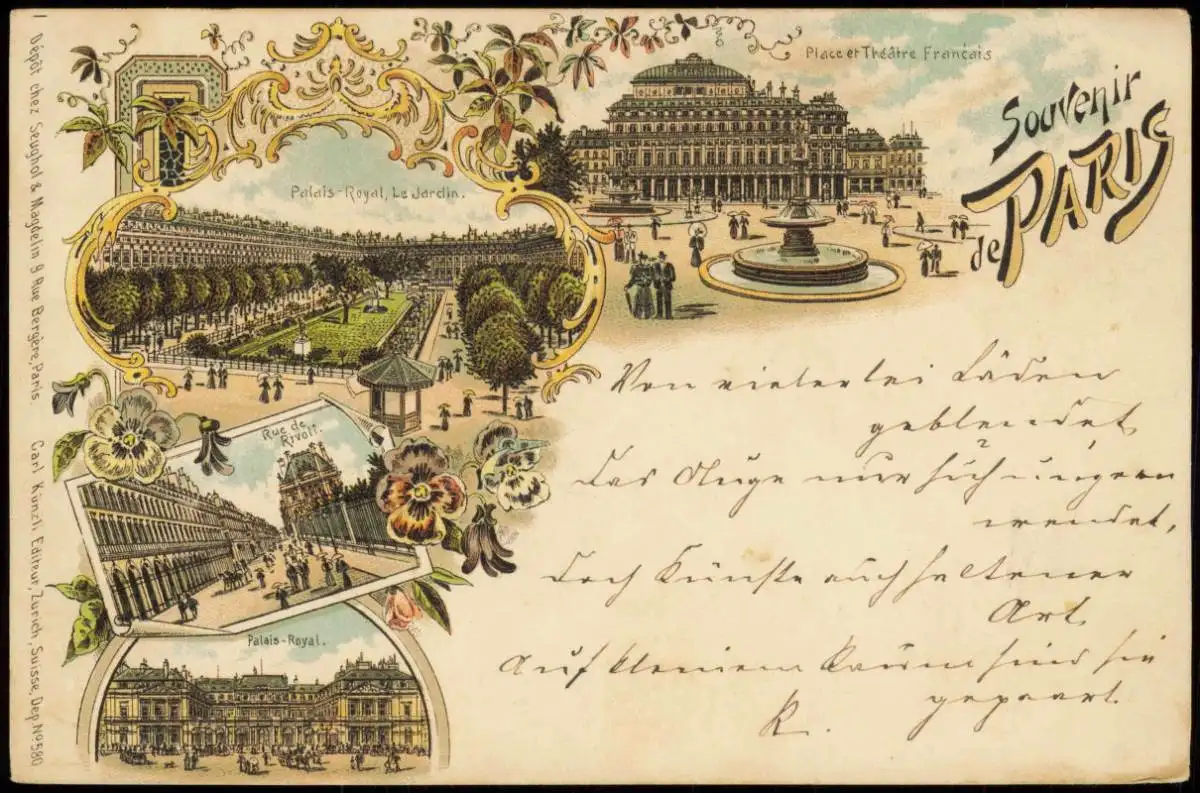 I Dépôt chez Seughol & Magdelin 9 Rue Bergère, Paris. Carl Künzli, Editeur, Zurich, Suisse, Dep. No 580
Place et Théâtre Français
Souvenir
de PARIS
Palais-Royal, Le Jardin.
Rue de
Rivoli.
Palais-Royal.
Von vielerlei Läden
geblendet,
Das Auge nur sich ungern
wendet,
Doch Künste auch seltener
Art,
Auf kleinem Raum sind sie
gepaart.
R.